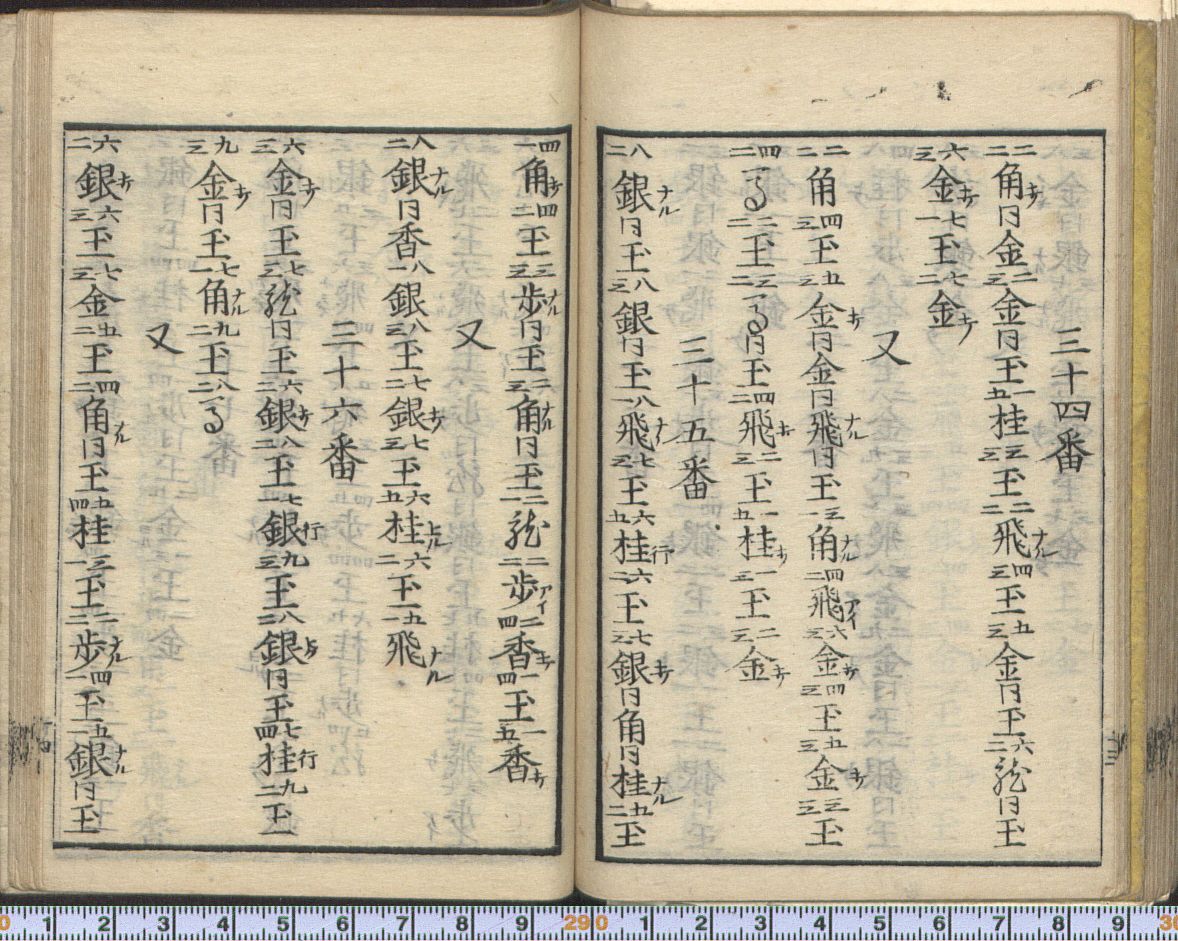 三十四番
二二角キ同金二三金同王一五桂三三王二二飛ナル四三王五三金同王六二龍同王
六三金キ七一王七二金キ
又
二二角四三王五三金キ同金同飛ナル同王三一角ナル四二飛アイ六三金キ四三王五三金キ三三王
四二馬二二王三二馬同王四二飛キ二三王一五桂キ一三王二三金キ
三十五番
八二銀ナル同王八三銀同王八一飛ナル七三王六五桂行六二王七三銀キ同角同桂ナル五二王
四一角キ四二王三三歩ナル同王二三角ナル同王二一龍二二歩アイ二四香キ一四王一五香キ
又
八二銀ナル同香八一銀八三王七二銀キ七三王六五桂上ル六二王五一飛ナル
三十六番
六三金キ同王七三龍同王六二銀キ八二王七一銀行九三王八二銀上同王七四桂行九二王
九三金キ同王七一角ナル九二王八二馬
又
六二銀キ六三王七三金五二王四二角ナル同王五四桂三一王二二歩ナル四一王五一銀ナル同王